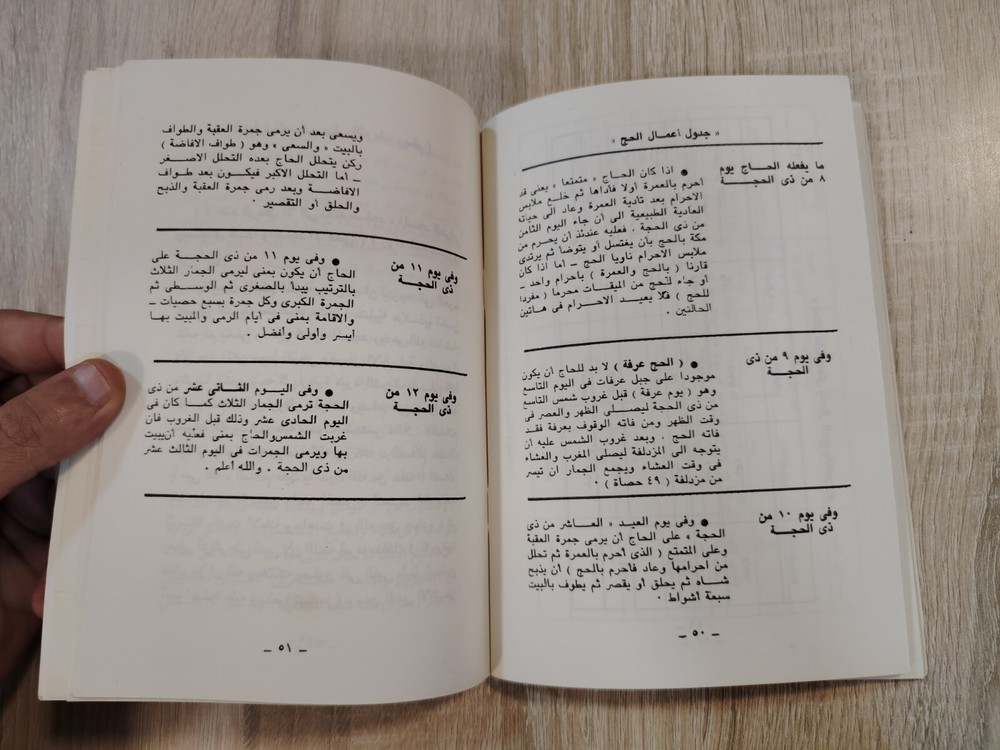 « جدول أعمال الحج »
ما يفعله الحاج يوم
٨ من ذى الحجة
● اذا كان الحاج « متمتعا » يعنى قد
أحرم بالعمرة أولا فأداها ثم خلع ملابس
الاحرام بعد تأدية العمرة وعاد الى حياته
العادية الطبيعية الى أن جاء اليوم الثامن
من ذى الحجة . فعليه عندئذ أن يحرم من
مكة بالحج بأن يغتسل أو يتوضأ ثم يرتدى
ملابس الاحرام ناويا الحج ــ أما اذا كان
قارنا ( بالحج والعمرة ) باحرام واحد ــ
أو جاء للحج من الميقات محرما ( مفردا
للحج ) فلا يعيد الاحرام فى هاتين
الحالتين .
وفى يوم ٩ من ذى
الحجة
● ( الحج عرفة ) لا بد للحاج أن يكون
موجودا على جبل عرفات فى اليوم التاسع
وهو ( يوم عرفة ) قبل غروب شمس التاسع
من ذى الحجة ليصلى الظهر والعصر فى
وقت الظهر ومن فاته الوقوف بعرفة فقد
فاته الحج . وبعد غروب الشمس عليه أن
يتوجه الى المزدلفة ليصلى المغرب والعشاء
فى وقت العشاء ويجمع الجمار ان تيسر
من مزدلفة ( ٤٩ حصاة ) .
وفى يوم ١٠ من
ذى الحجة
● وفى يوم العيد « العاشر من ذى
الحجة » على الحاج أن يرمى جمرة العقبة
وعلى المتمتع ( الذى أحرم بالعمرة ثم تحلل
من احرامها وعاد فأحرم بالحج ) أن يذبح
شاه ثم يحلق أو يقصر ثم يطوف بالبيت
سبعة أشواط .
ــ ٥٠ ــ
ويسعى بعد أن يرمى جمرة العقبة والطواف
بالبيت « والسعى » وهو ( طواف الافاضة )
ركن يتحلل الحاج بعده التحلل الاصغر
ــ أما التحلل الاكبر فيكون بعد طواف
الافاضة وبعد رمى جمرة العقبة والذبح
والحلق أو التقصير .
وفى يوم ١١ من
ذى الحجة
● وفى يوم ١١ من ذى الحجة على
الحاج أن يكون بمنى ليرمى الجمار الثلاث
بالترتيب يبدأ بالصغرى ثم الوسطى ثم
الجمرة الكبرى وكل جمرة بسبع حصيات ــ
والاقامة بمنى فى أيام الرمى والمبيت بها
أيسر وأولى وأفضل .
وفى يوم ١٢ من
ذى الحجة
● وفى اليوم الثانى عشر من ذى
الحجة ترمى الجمار الثلاث كما كان فى
اليوم الحادى عشر وذلك قبل الغروب فان
غربت الشمس والحاج بمنى فعليه أن يبيت
بها ويرمى الجمرات فى اليوم الثالث عشر
من ذى الحجة . والله أعلم .
ــ ٥١ ــ